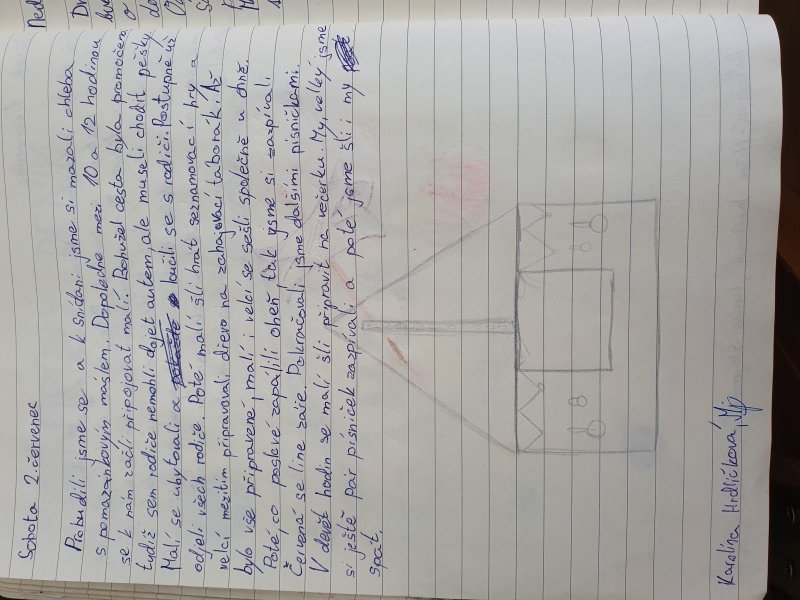 Sobota 2. červenec
Probudili jsme se a k snídani jsme si mazali chleba
s pomazánkovým máslem. Dopoledne mezi 10 a 12 hodinou
se k nám začli připojovat malí. Bohužel cesta byla promočená
tudíž sem rodiče nemohli dojet autem, ale museli chodit pěšky
Malí se ubytovali a loučili se s rodiči. Postupně už
odjeli všech rodiče. Poté malí šli hrát seznamovací hry a
velcí mezitím připravovali dřevo na zahajovací táborák. Až
bylo vše připravené, malí i velcí se sešli společně u ohně.
Poté, co poslové zapálili oheň, tak jsme si zazpívali
Červená se line záře. Pokračovali jsme dalšími písničkami.
V devět hodin se malí šli připravit na večerku. My, velký jsme
si ještě pár písniček zazpívali a poté jsme šli i my
spát.
Karolína Hrdličková,
Ned